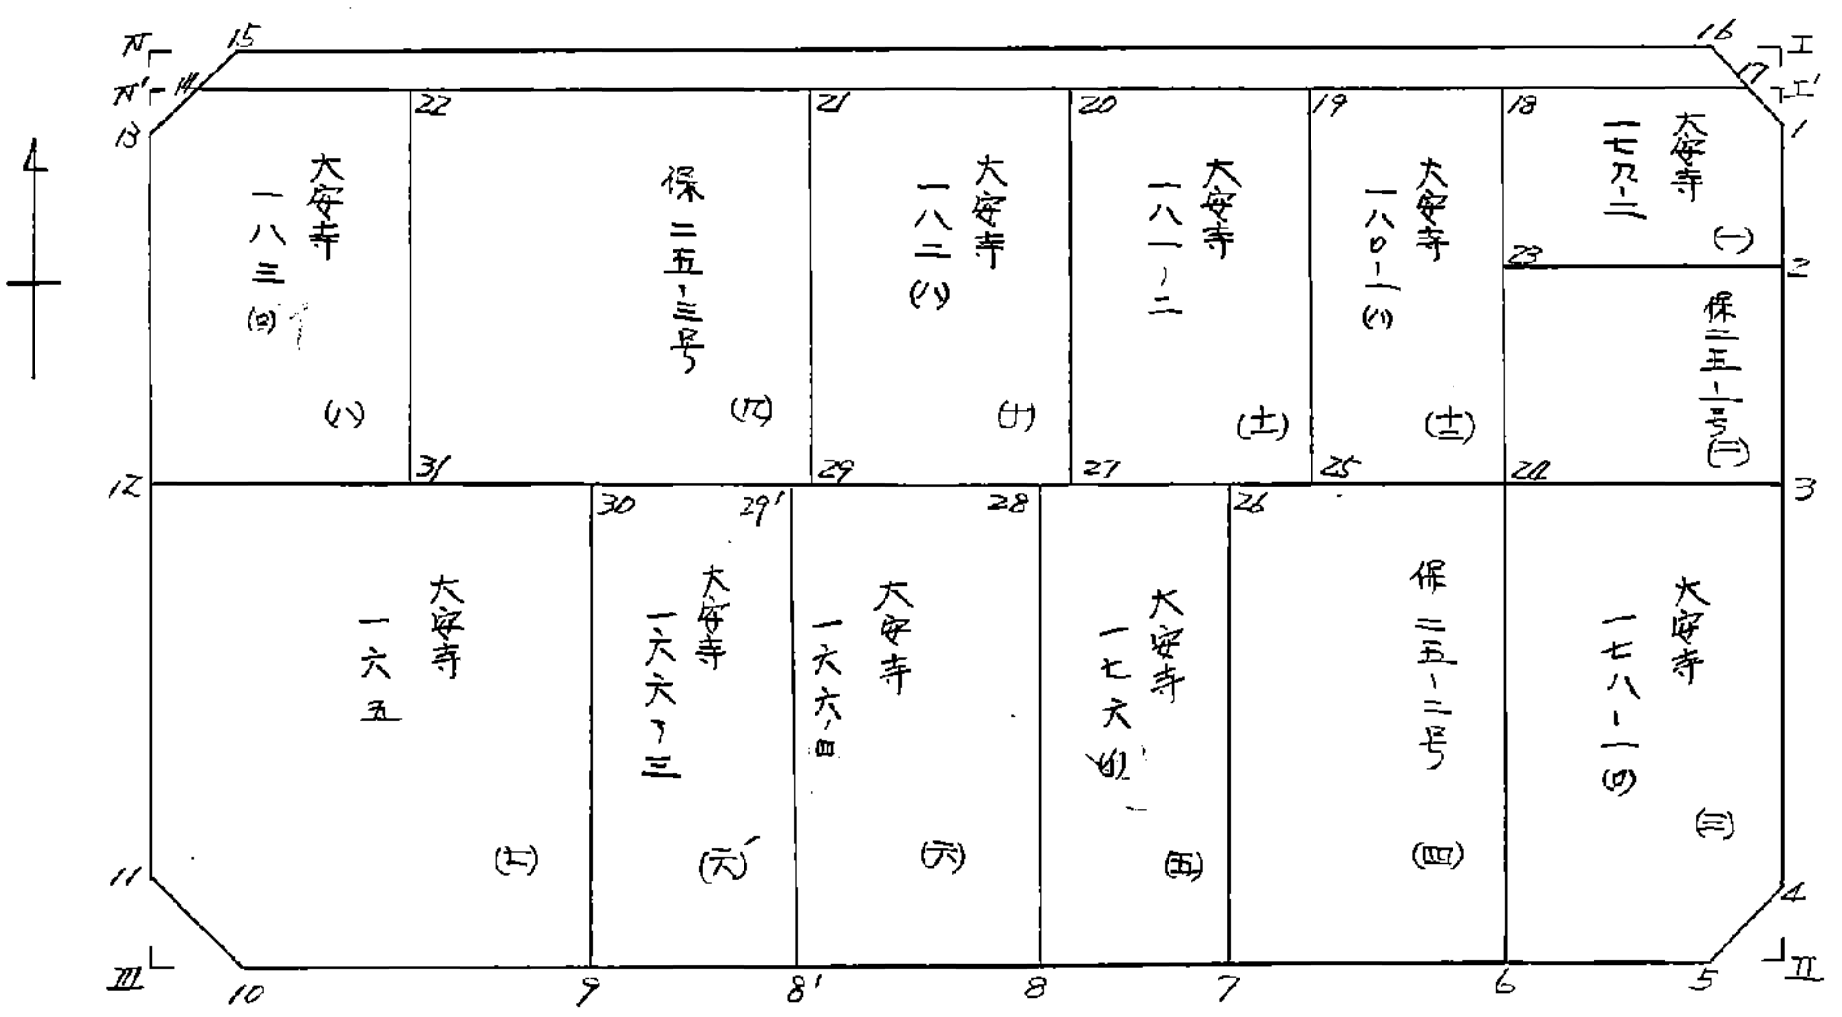 IV
15
16
I
IV'
14
17
I'
13
22
21
20
19
18
1
大安寺
一八三(ロ)
(八)
保二五-三号
(九)
大安寺
一八二(ハ)
(十)
大安寺
一八一-二
(十一)
大安寺
一八〇-一(ハ)
(十二)
大安寺
一七九-二
(一)
23
2
保二五-一号
(二)
12
31
29
27
25
24
3
30
29'
28
26
大安寺
一六五
(七)
大安寺
一六六-三
(六)'
大安寺
一六六-四
(六)
大安寺
一七六
(五)
保二五-二号
(四)
大安寺
一七八-一(ロ)
(三)
11
4
III
10
9
8'
8
7
6
5
II